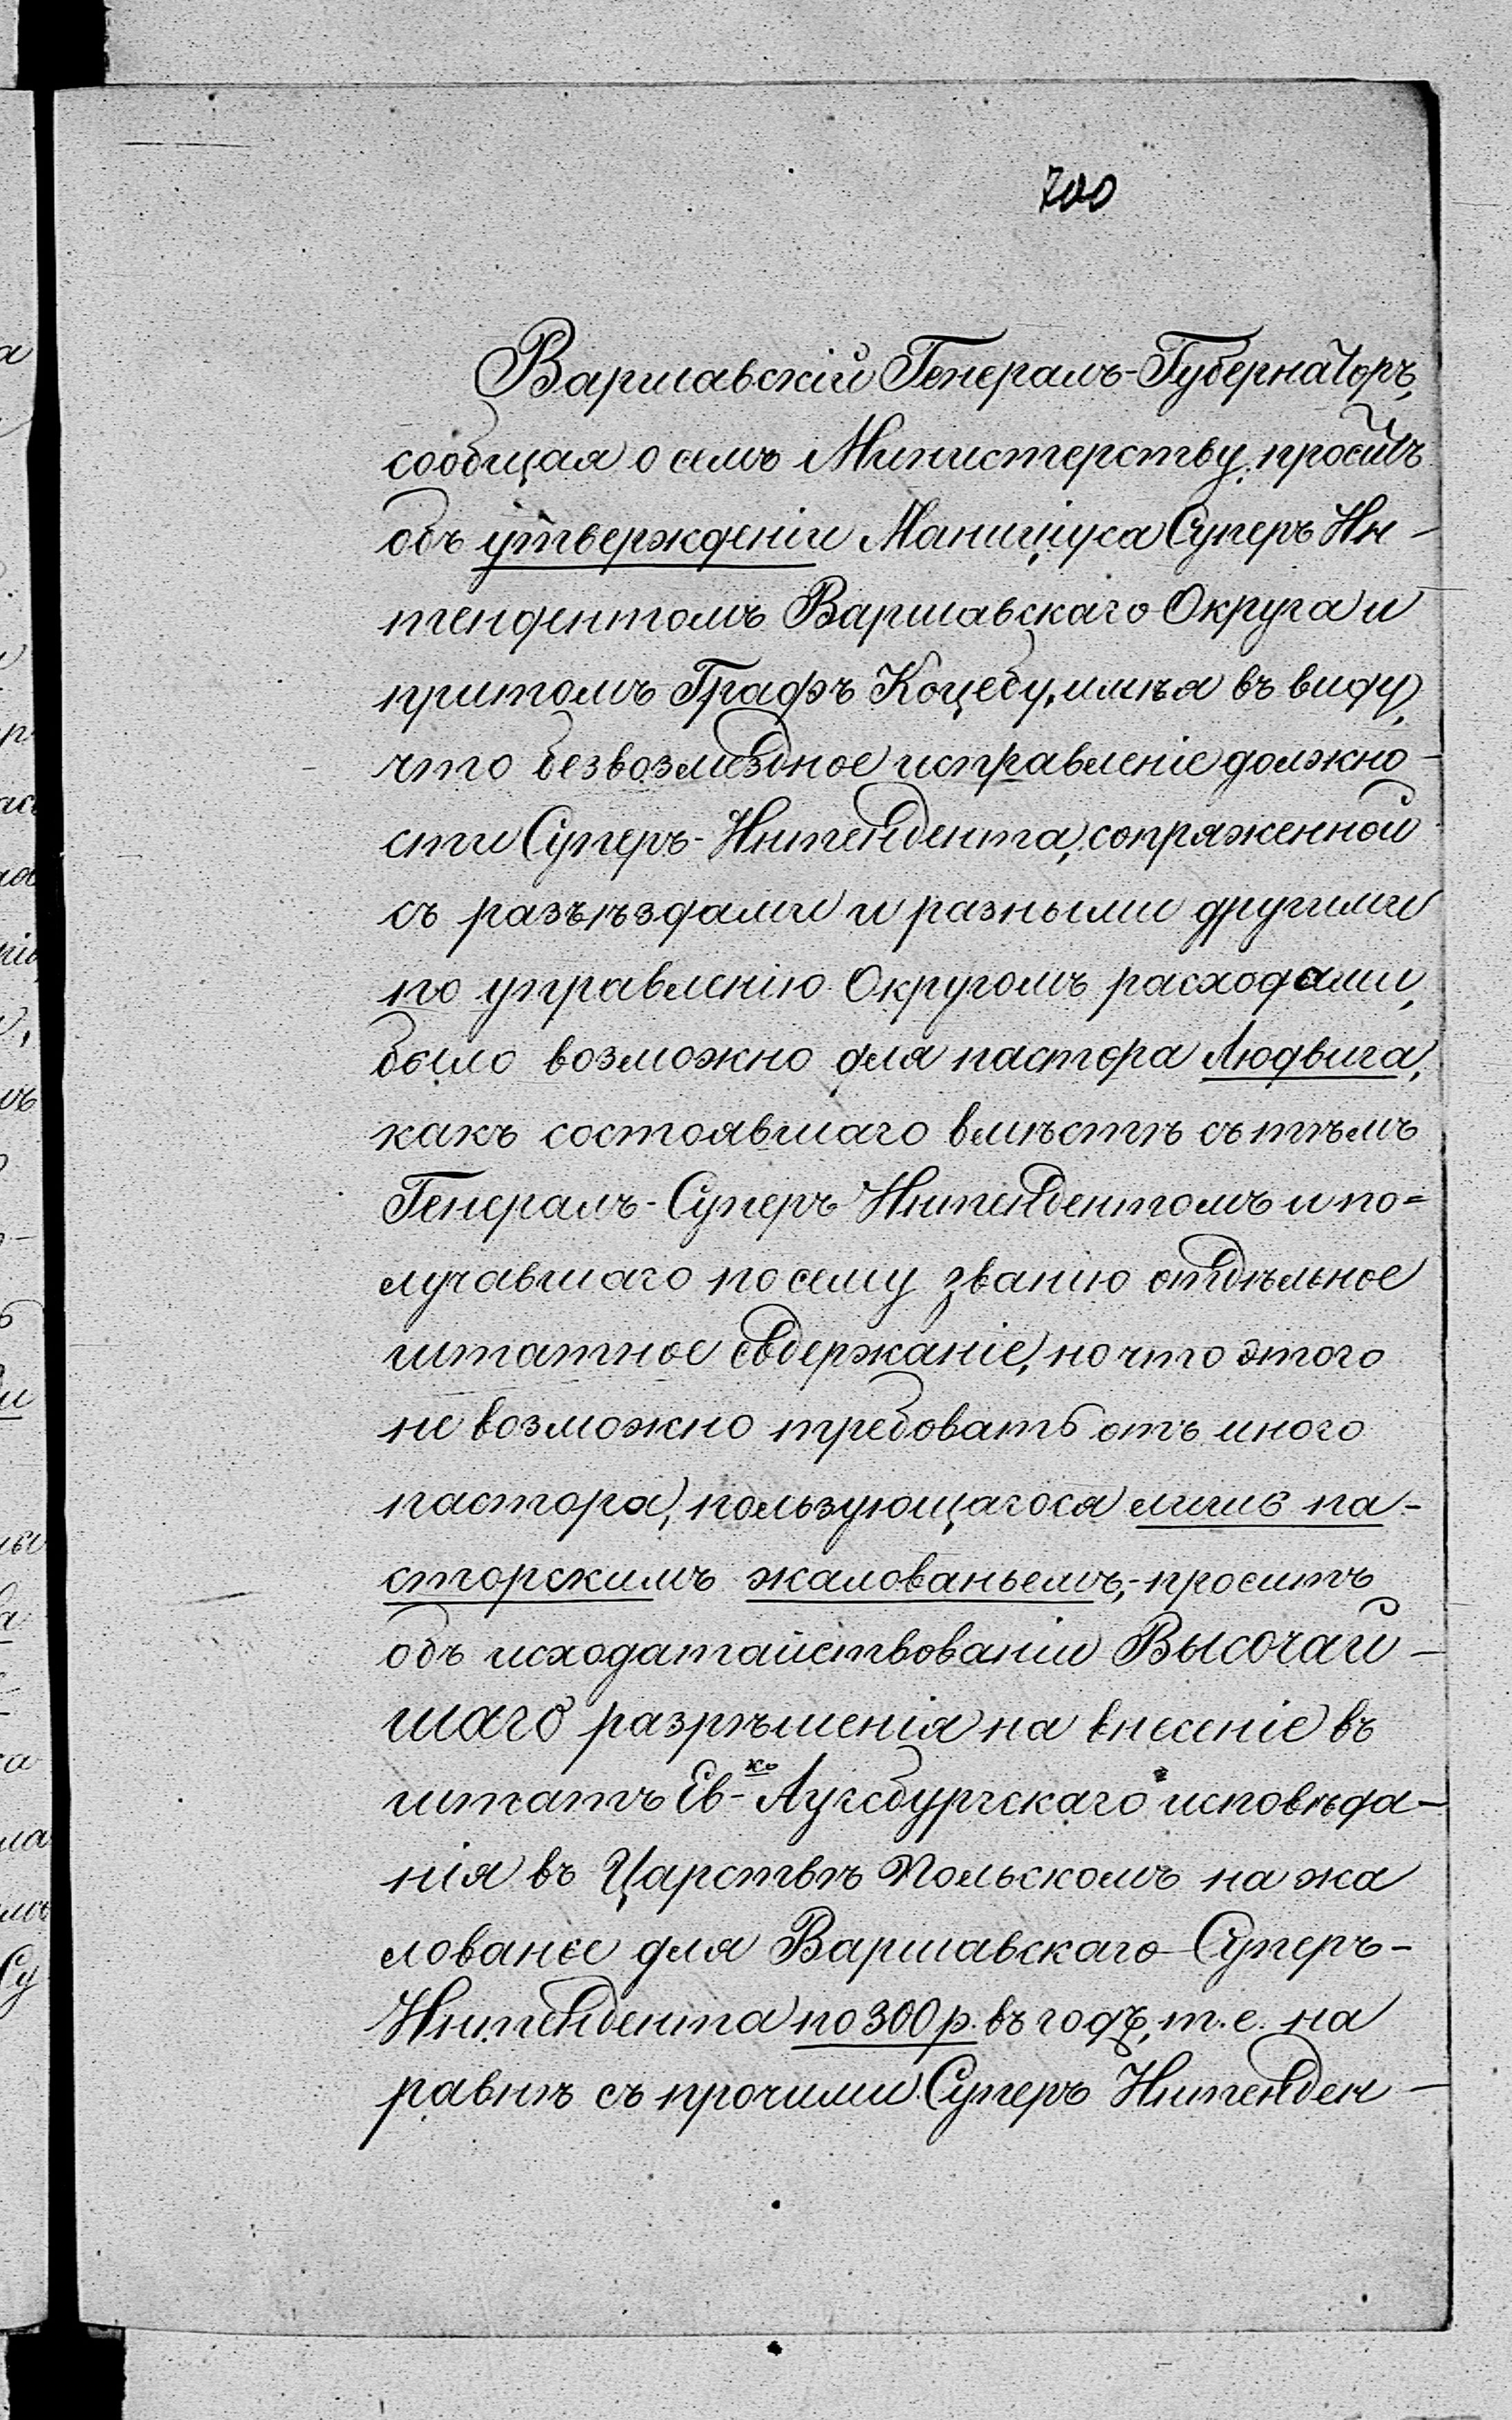 700
Варшавскій Генералъ-Губернаторъ,
сообщая о семъ Министерству, проситъ
объ утвержденіи Маниціуса Суперъ Ин-
тендентомъ Варшавскаго Округа и
притомъ Графъ Коцебу, имѣя въ виду,
что безвозмездное исправленіе должно-
сти Суперъ-Интендента, сопряженной
съ разъѣздами и разными другими
по управленію Округомъ расходами,
было возможно для пастора Людвига,
какъ состоявшаго вмѣстѣ съ тѣмъ
Генералъ-Суперъ Интендентомъ и по=
лучавшаго по сему званію отдѣльное
штатное содержаніе, но что этого
не возможно требовать отъ иного
пастора, пользующагося лишь па-
сторскимъ жалованьемъ,-проситъ
объ исходатайствованіи Высочай-
шаго разрѣшенія на внесеніе въ
штатъ Ев-ко Аугсбургскаго исповѣда-
нія въ Царствѣ Польскомъ на жа
лованье для Варшавскаго Суперъ-
Интендента по 300 р. въ годъ, т. е. на
равнѣ съ прочими Суперъ Интенден-